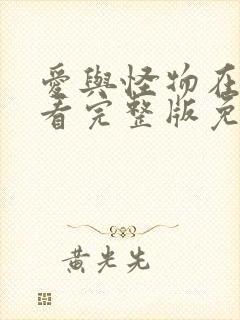 愛與怪物在
看完整版免
黃光先